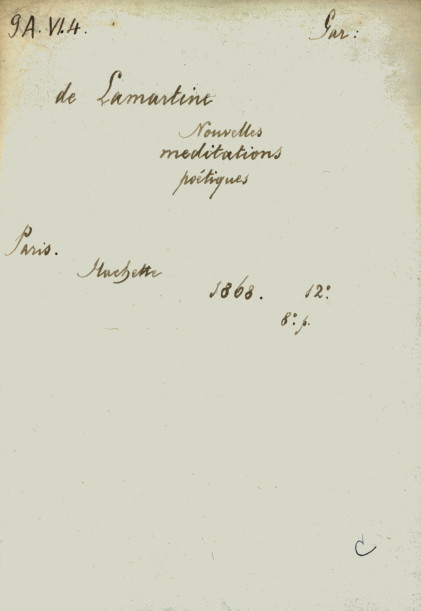 9A. VI. 4. Gar:
de Lamartine
Nouvelles
meditations
poétiques
Paris.
Hachette
1868. 12°.
8° p.
C